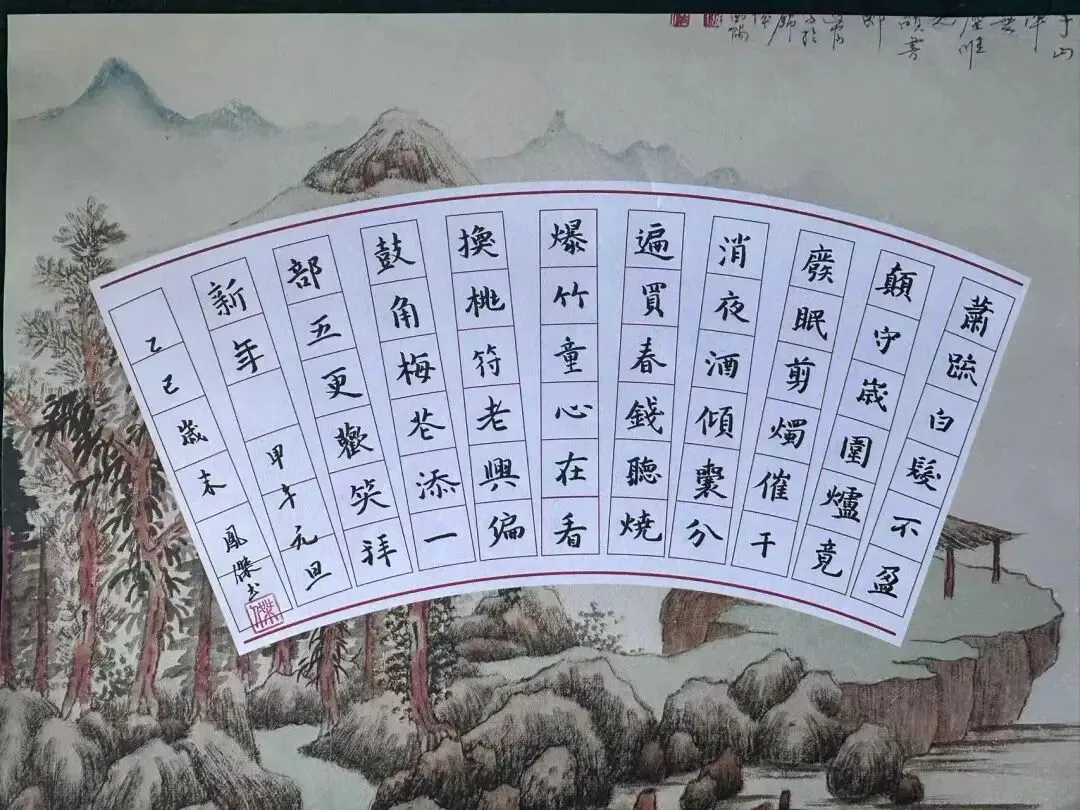 蕭疏白髮不盈
顛守歲圍爐竟
廢眠剪燭催干
消夜酒傾囊分
遍買春錢聽燒
爆竹童心在看
換桃符老興偏
鼓角梅花添一
部五更歡笑拜
新年 甲午元旦
乙巳歲末鳳傑书